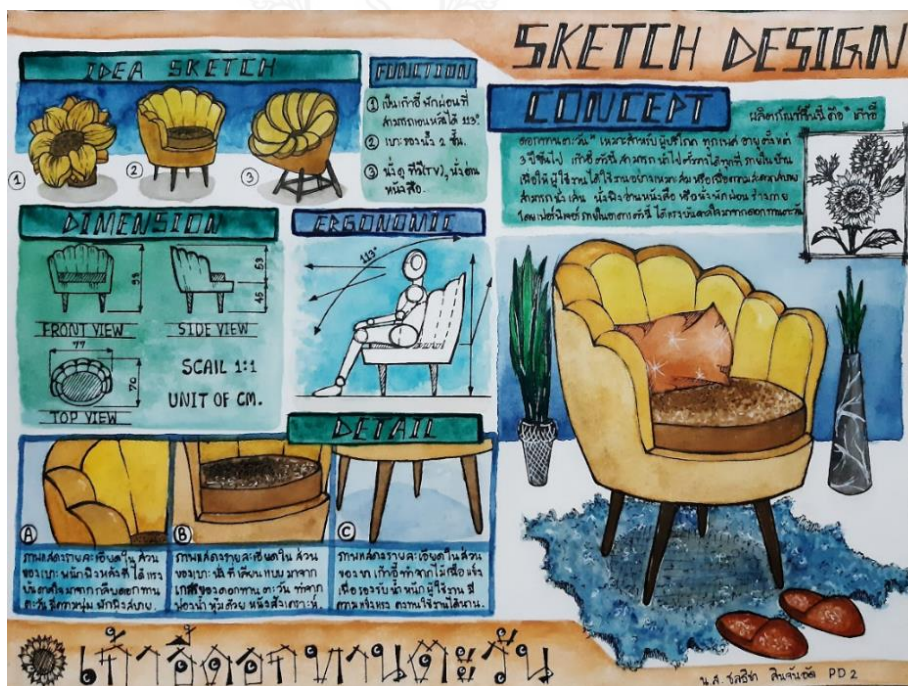 SKETCH DESIGN
IDEA SKETCH
1
2
3
FUNCTION
① เป็นเก้าอี้พักผ่อนที่
สามารถเอนหลังได้ 113°
② เบาะรองนั่ง 2 ชั้น.
③ นั่งดูทีวี(TV), นั่งอ่าน
หนังสือ.
CONCEPT
ผลิตภัณฑ์ชิ้นนี้คือ "เก้าอี้
ดอกทานตะวัน" เหมาะสำหรับผู้บริโภค ทุกเพศ อายุตั้งแต่
3 ปีขึ้นไป เก้าอี้ตัวนี้สามารถนำไปตั้งวางได้ทุกที่ ภายในบ้าน
เพื่อให้ผู้ใช้งานได้ใช้งานอย่างเหมาะสม
สามารถนั่งเล่น นั่งพิงอ่านหนังสือ หรือนั่งพักผ่อน ร่างกาย
ได้แรงบันดาลใจมาจากดอกทานตะวัน
DIMENSION
93
53
45
FRONT VIEW
SIDE VIEW
77
70
TOP VIEW
SCAIL 1:1
UNIT OF CM.
ERGONOMIC
113°
DETAIL
A
B
C
ภาพแสดงรายละเอียดในส่วน
ของเบาะพนักพิงหลังที่ได้แรง
บันดาลใจมาจากกลีบดอกทาน
ตะวัน มีความนุ่ม พักพิงสบาย.
ภาพแสดงรายละเอียดในส่วน
ของเบาะนั่งที่เลียนแบบมาจาก
เกสรของดอกทานตะวัน ทำจาก
ฟองน้ำหุ้มด้วย หนังสังเคราะห์.
ภาพแสดงรายละเอียดในส่วน
ของขาเก้าอี้ทำจากไม้เนื้อแข็ง
เพื่อรองรับน้ำหนักผู้ใช้งาน มี
ความแข็งแรง คงทนใช้งานได้นาน.
เก้าอี้ดอกทานตะวัน
น.ส. ชลธิชา PD 2